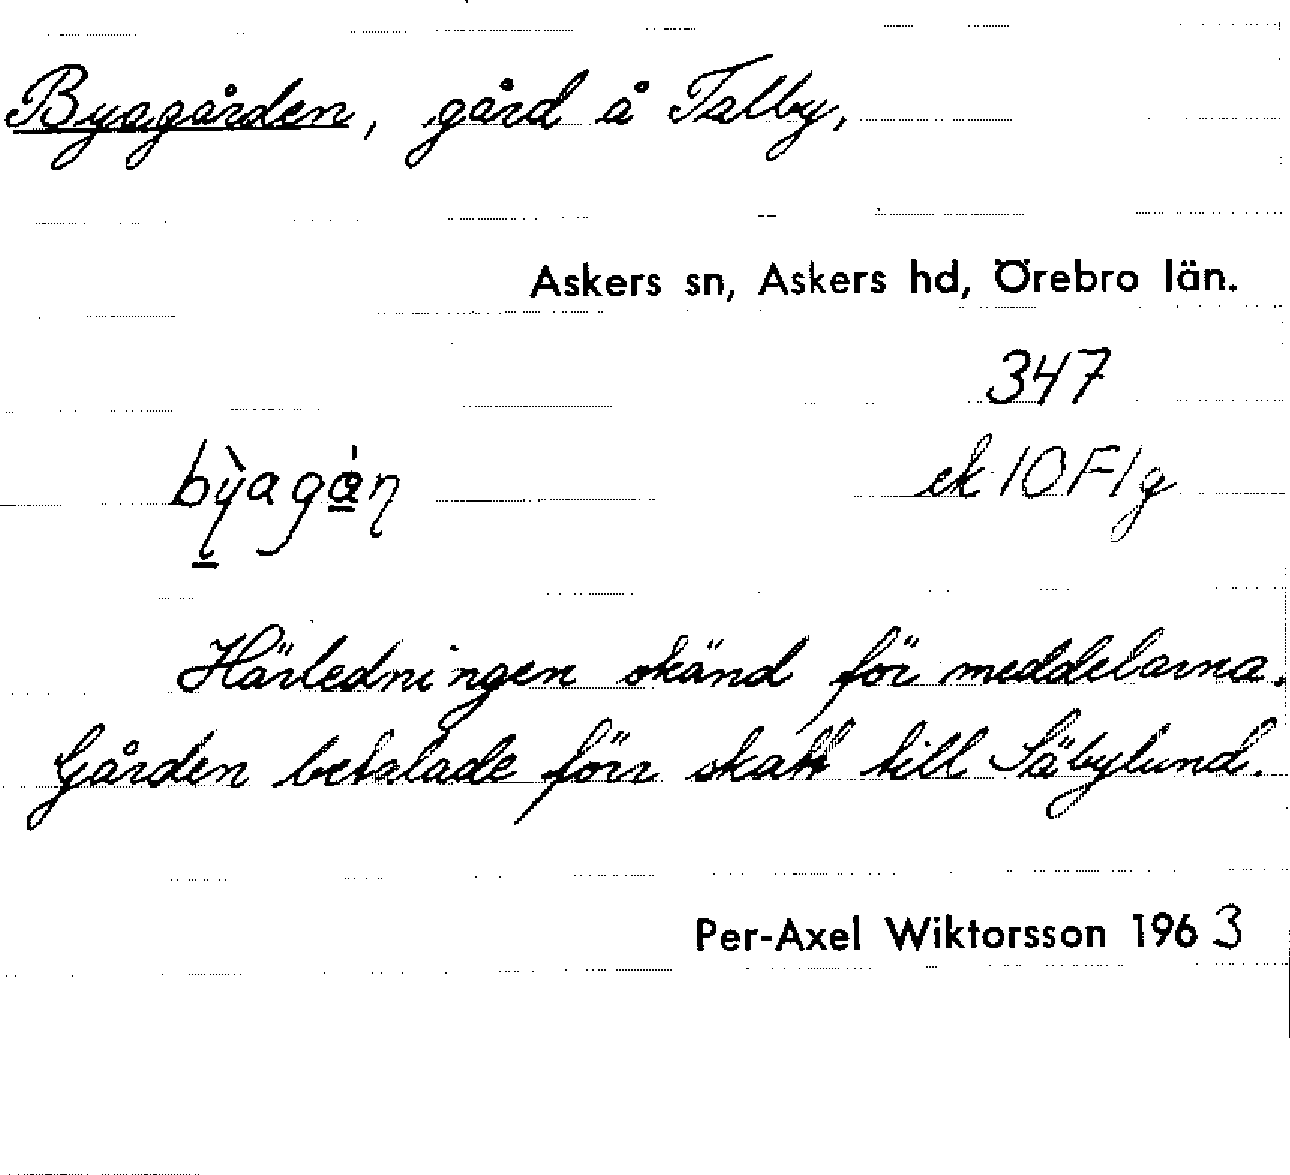 Byagården, gård å Talby,
Askers sn, Askers hd, Örebro län.
347
bỳagȧ̊ņ ek 10 F 1 g
Härledningen okänd för meddelarna.
Gården betalade förr skatt till Säbylund.
Per-Axel Wiktorsson 1963